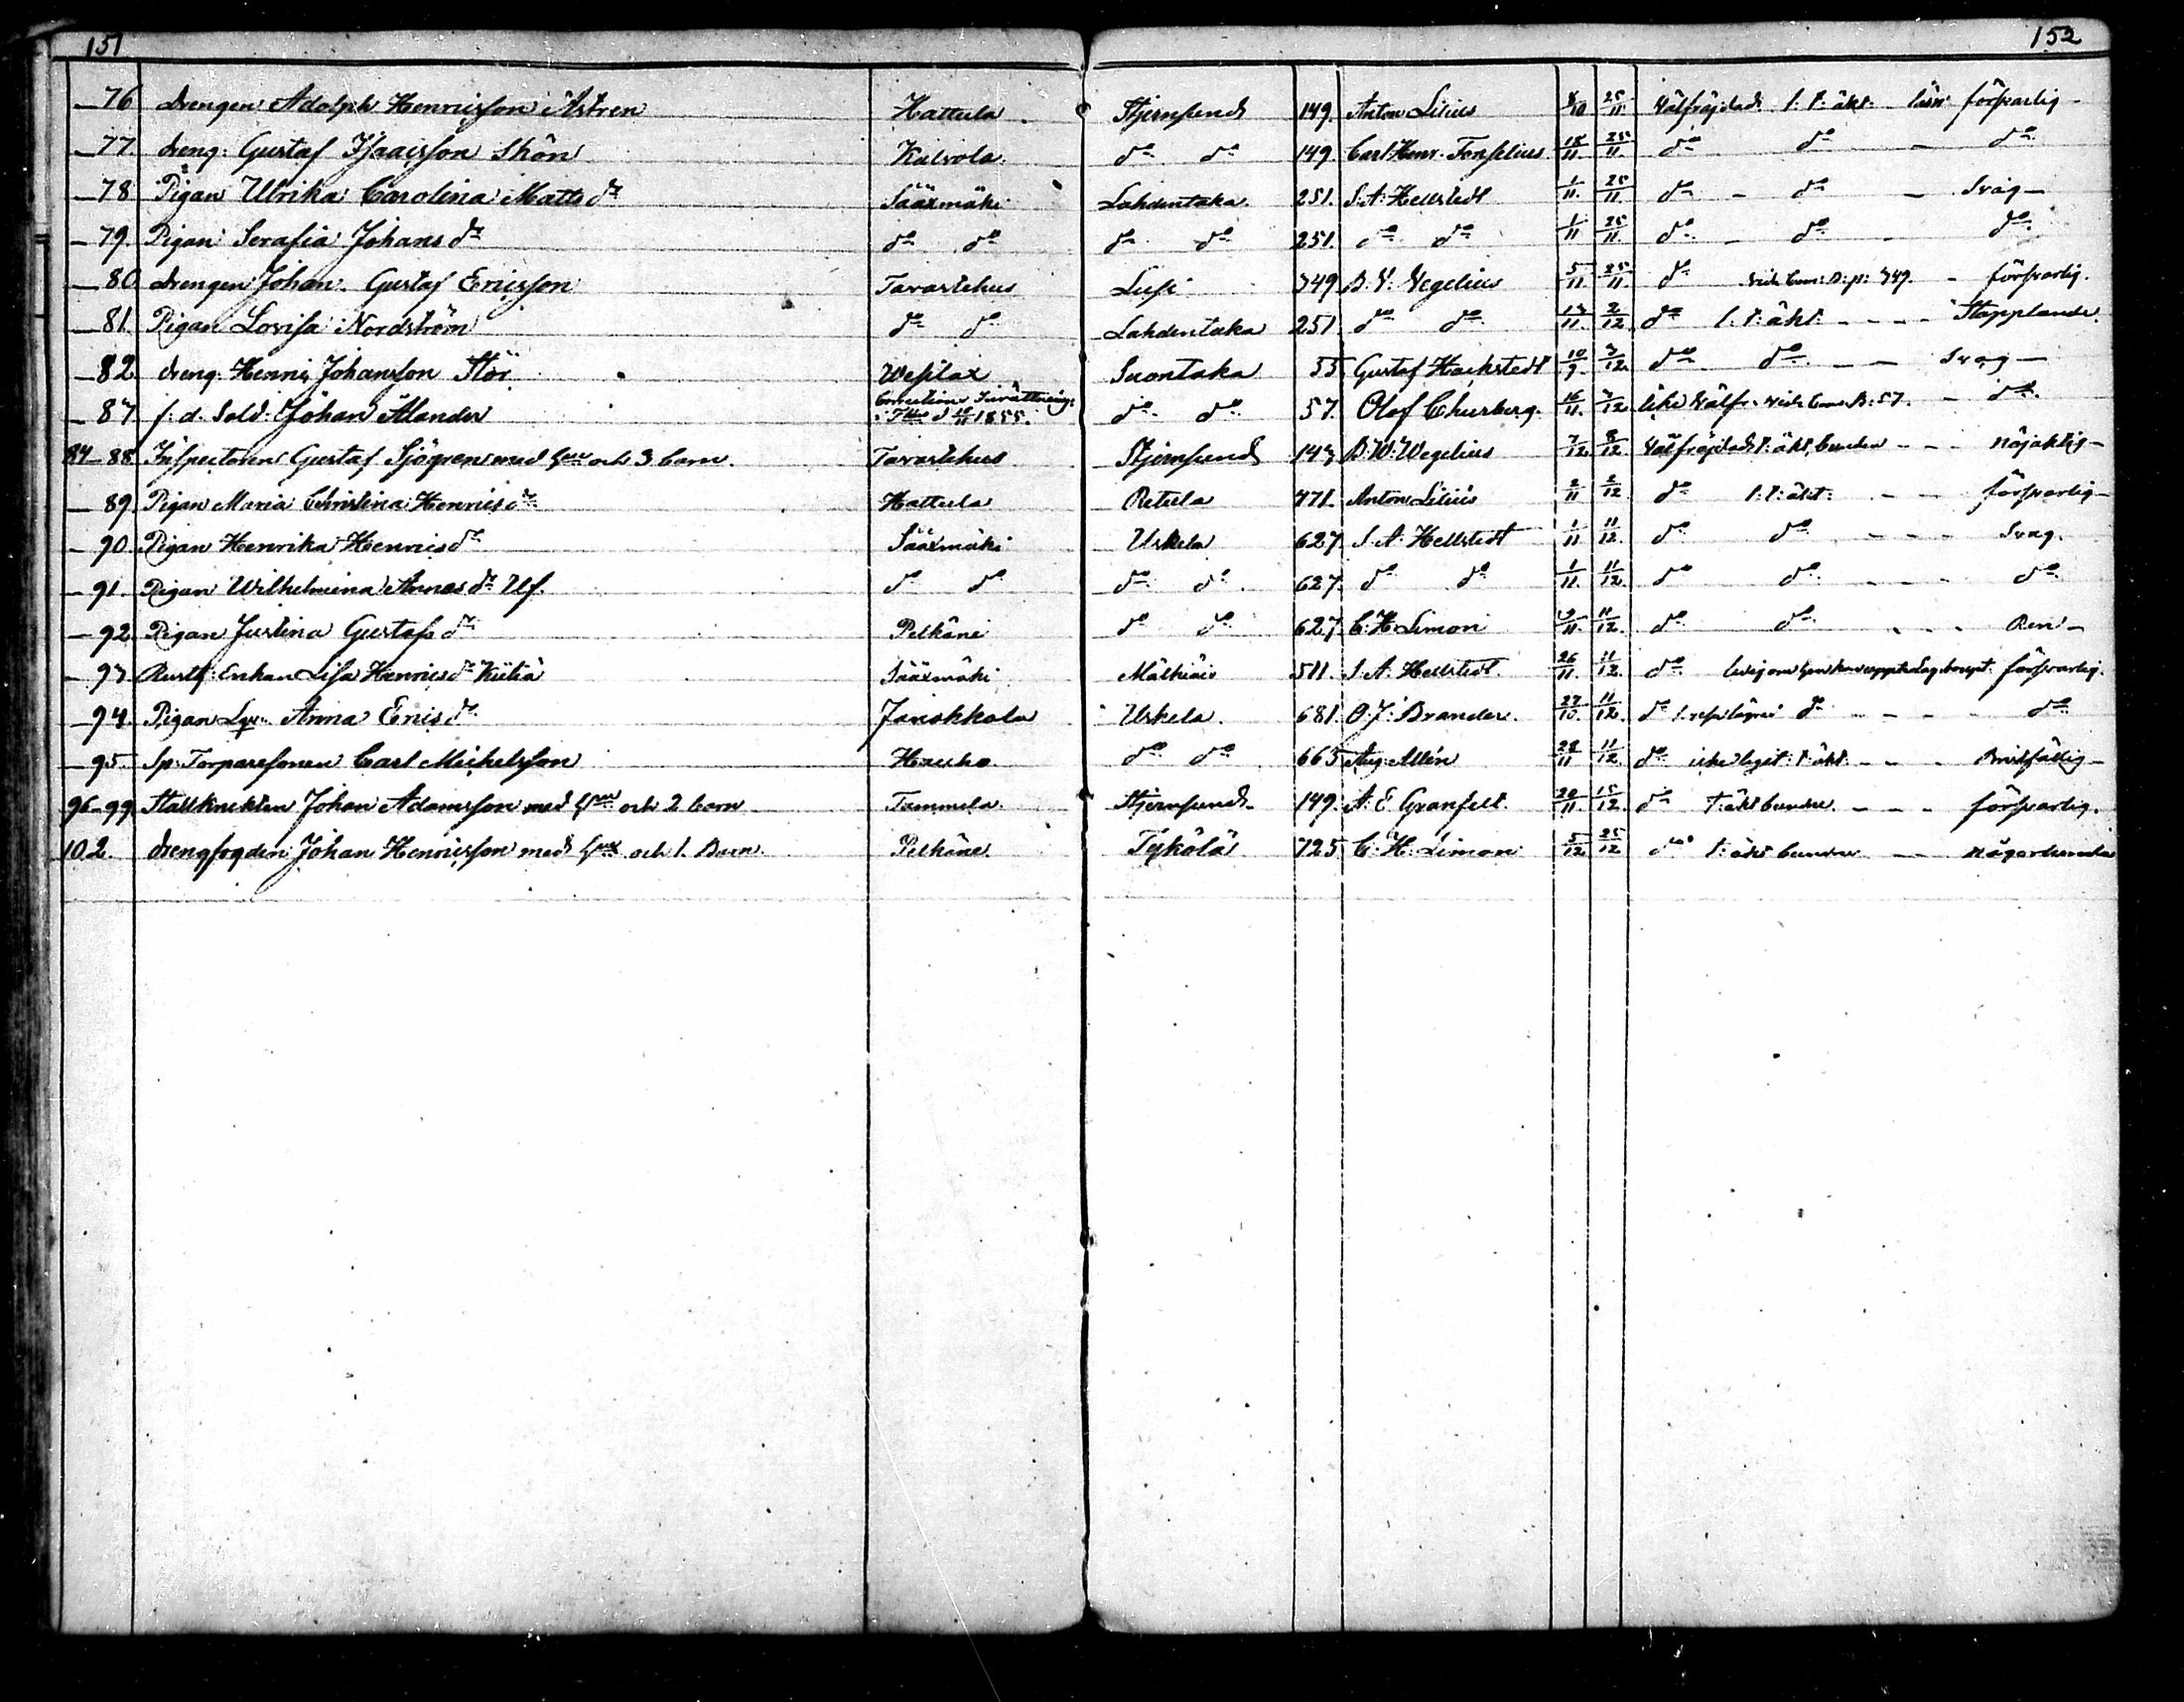 151 152
76 Drengen Adolph Henricsson Åström Hattula Stjernsund 149. Anton Lilius 8/10 25/11 Välfrejdad l. t. äkt. läsn: försvarlig
77. dreng: Gustaf Isaacsson Skön Kalvola dº dº 149. Carl Henr. Forselius 18/11 25/11 dº dº dº
78 Pigan Ulrika Carolina Matts dr Sääxmäki Lahdentaka 251. S. A. Hellstedt 1/11 25/11 dº dº Svag
79. Pigan Serafia Johans dr dº dº dº dº 251. dº dº 1/11 25/11 dº dº dº
80 Drengen Johan Gustaf Ericsson Tavastehus Lusi 349 B. W. Wegelius 5/11 25/11 dº vide Com: B: p: 349. försvarlig.
81. Pigan Lovisa Nordström dº dº Lahdentaka 251 dº dº 13/11 2/12 dº l. t. äkt. Stapplande
82 dreng: Henric Johansson Stör Westlax Suontaka 55 Gustaf Hackstedt 10/9 3/12 dº dº Svag
83. f. d. Sold: Johan Ålander Corrections Inrättning: 1855. dº dº 57. Olof Churberg. 16/11 3/12 icke Välfr. vide Com. B: 57. dº
84-88 Inspectoren Gustaf Sjögren med hru och 3 barn. Tavastehus Stjernsund 143 B. W. Wegelius 7/12 8/12 Välfrejdad t: äkt. bunden nöjaktig
89. Pigan Maria Christina Henrics dr Hattula Retula 771. Anton Lilius 2/11 2/12 dº l: t: äkt: försvarlig
90. Pigan Henrika Henrics dr Sääxmäki Uskela 627. S. A. Hellstedt 1/11 11/12 dº dº Svag.
91. Pigan Wilhelmina Annas dr Ulf. dº dº dº dº 627. dº dº 1/11 11/12 dº dº dº
92. Pigan Justina Gustafs dr Pelkäne dº dº 627. C. H. Limon 9/11 11/12 dº dº Ren
93. Rustf: Enkan Lisa Henrics dr Kiltiä Sääxmäki Mälkiäis 511. S. A. Hellstedt. 26/11 11/12 dº försvarlig.
94. Pigan Anna Erics dr Janakkala Uskela. 681. O. J. Brander. 27/10 11/12 dº dº dº
95. Sp: Torparesonen Carl Michelsson Hauho dº dº 665 Aug: Allén 28/11 11/12 dº icke legit: t: äkt. Bristfällig
96-99 Stallknekten Johan Adamsson med hru och 2 barn Tammela Stjernsund 149. A. E. Granfelt 20/11 15/12 dº t: äkt bundne. försvarlig.
102. Drengfogden Johan Henricsson med hru och 1. Barn. Pelkäne. Tykölä 725 C. H. Limon 5/12 25/12 dº t: äkt bundne någorlunda